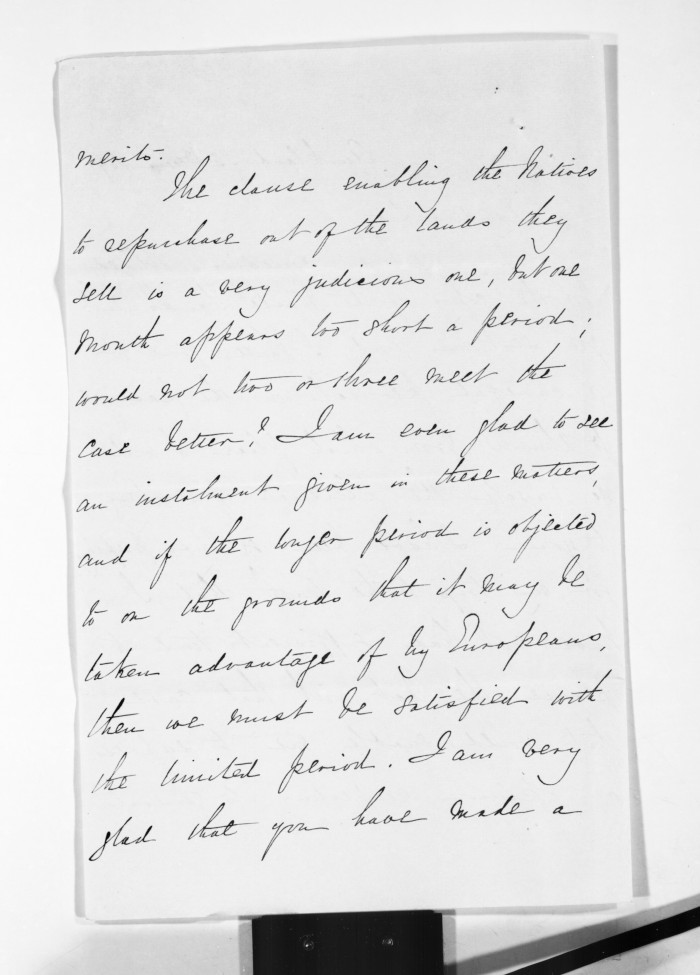 merits.
The clause enabling the Natives
to repurchase out of the lands they
sell is a very judicious one, but one
month appears too short a period;
would not two or three meet the
case better? I am even glad to see
an instalment given in these matters,
and if the longer period is objected
to on the grounds that it may be
taken advantage of by Europeans,
then we must be satisfied with
the limited period. I am very
glad that you have made a